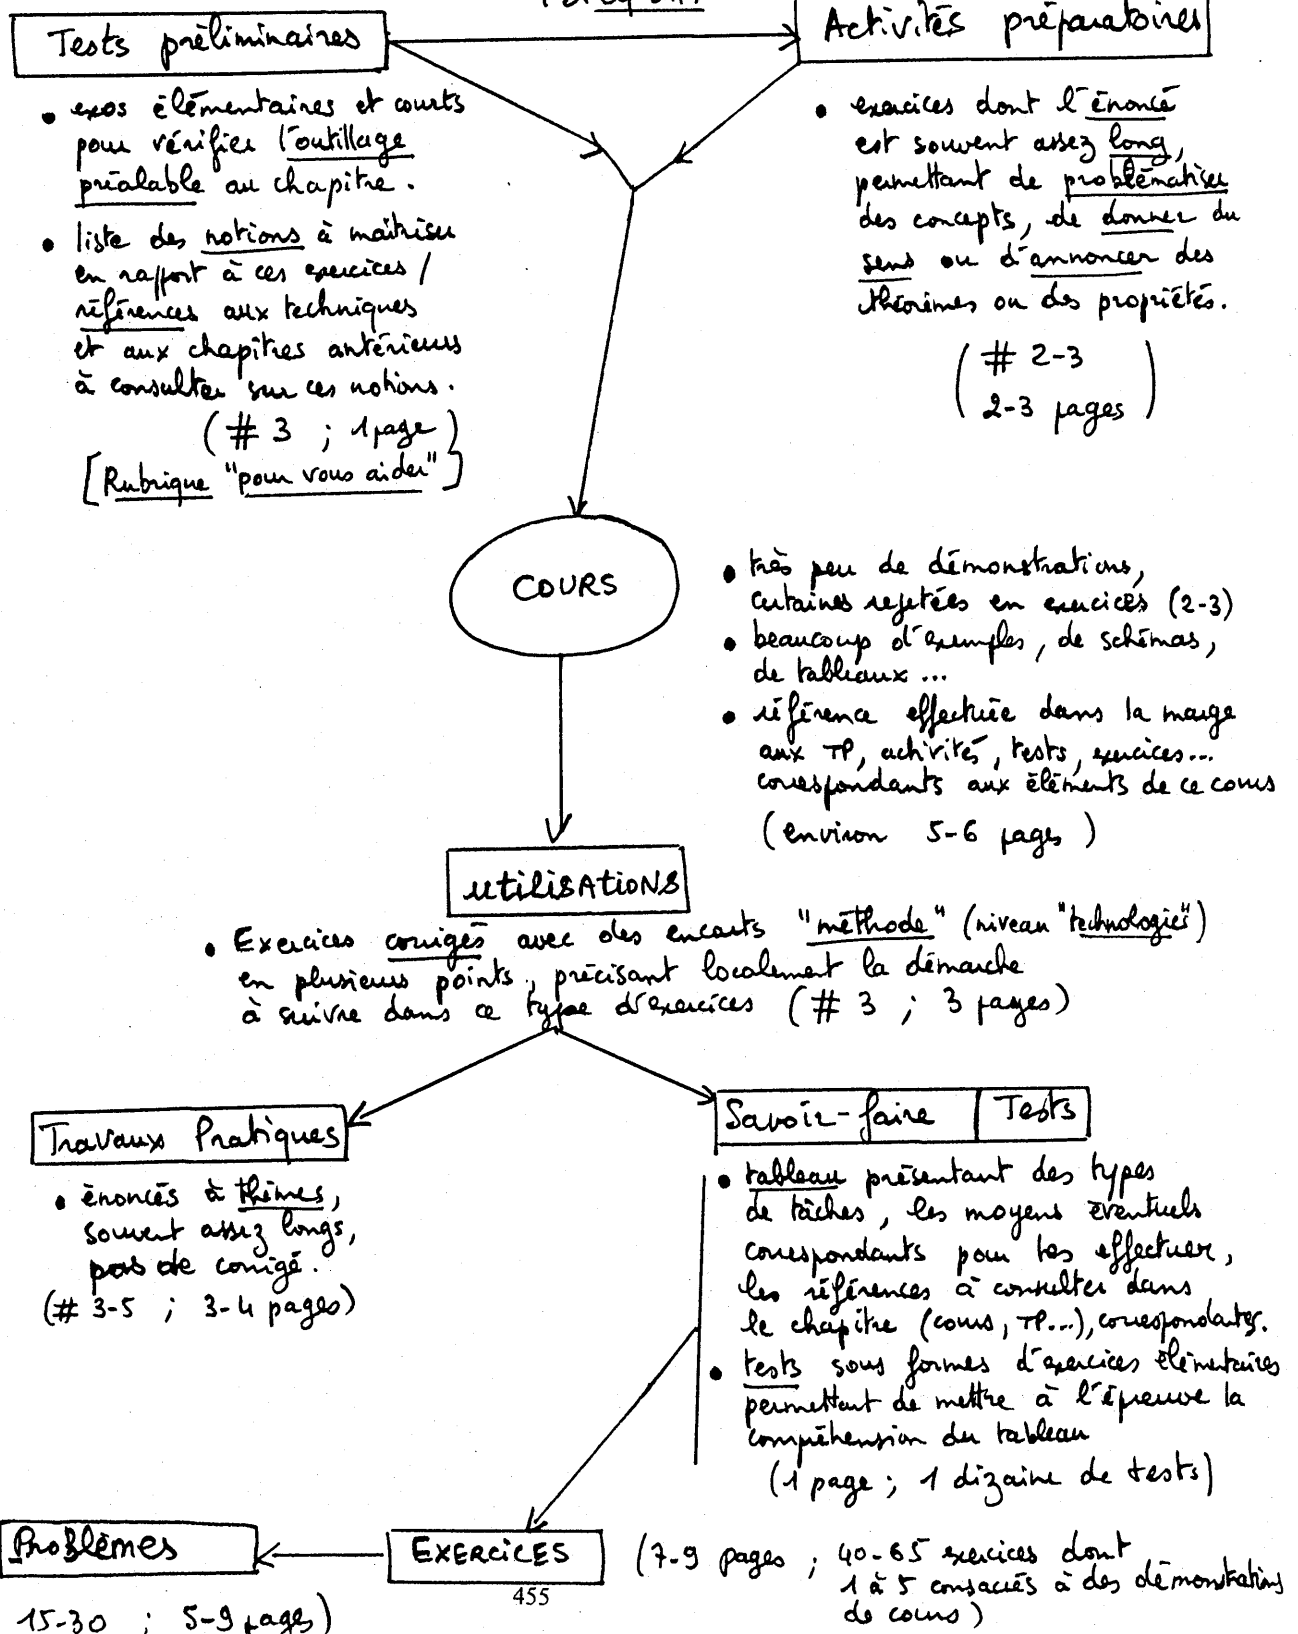 Tests préliminaires
Activités préparatoires
• exos élémentaires et courts
pour vérifier l'outillage
préalable au chapitre.
• liste des notions à maîtriser
en rapport à ces exercices /
références aux techniques
et aux chapitres antérieurs
à consulter sur ces notions.
(# 3 ; 1 page)
[Rubrique "pour vous aider"]
• exercices dont l'énoncé
est souvent assez long,
permettant de problématiser
des concepts, de donner du
sens ou d'annoncer des
théorèmes ou des propriétés.
(# 2-3
2-3 pages)
COURS
• très peu de démonstrations,
certaines rejetées en exercices (2-3)
• beaucoup d'exemples, de schémas,
de tableaux...
• référence effectuée dans la marge
aux TP, activités, tests, exercices...
correspondants aux éléments de ce cours
(environ 5-6 pages)
utilisATioNS
• Exercices corrigés avec des encarts "méthode" (niveau "technologies")
en plusieurs points, précisant localement la démarche
à suivre dans ce type d'exercices (# 3 ; 3 pages)
Travaux Pratiques
• énoncés à thèmes,
souvent assez longs,
pas de corrigé.
(# 3-5 ; 3-4 pages)
Savoir-faire | Tests
• tableau présentant des types
de tâches, les moyens éventuels
correspondants pour les effectuer,
les références à consulter dans
le chapitre (cours, TP...), correspondantes.
• tests sous formes d'exercices élémentaires
permettant de mettre à l'épreuve la
compréhension du tableau
(1 page ; 1 dizaine de tests)
Problèmes
15-30 ; 5-9 pages)
EXERCICES
(7-9 pages ; 40-65 exercices dont
1 à 5 consacrés à des démonstrations
de cours)
455